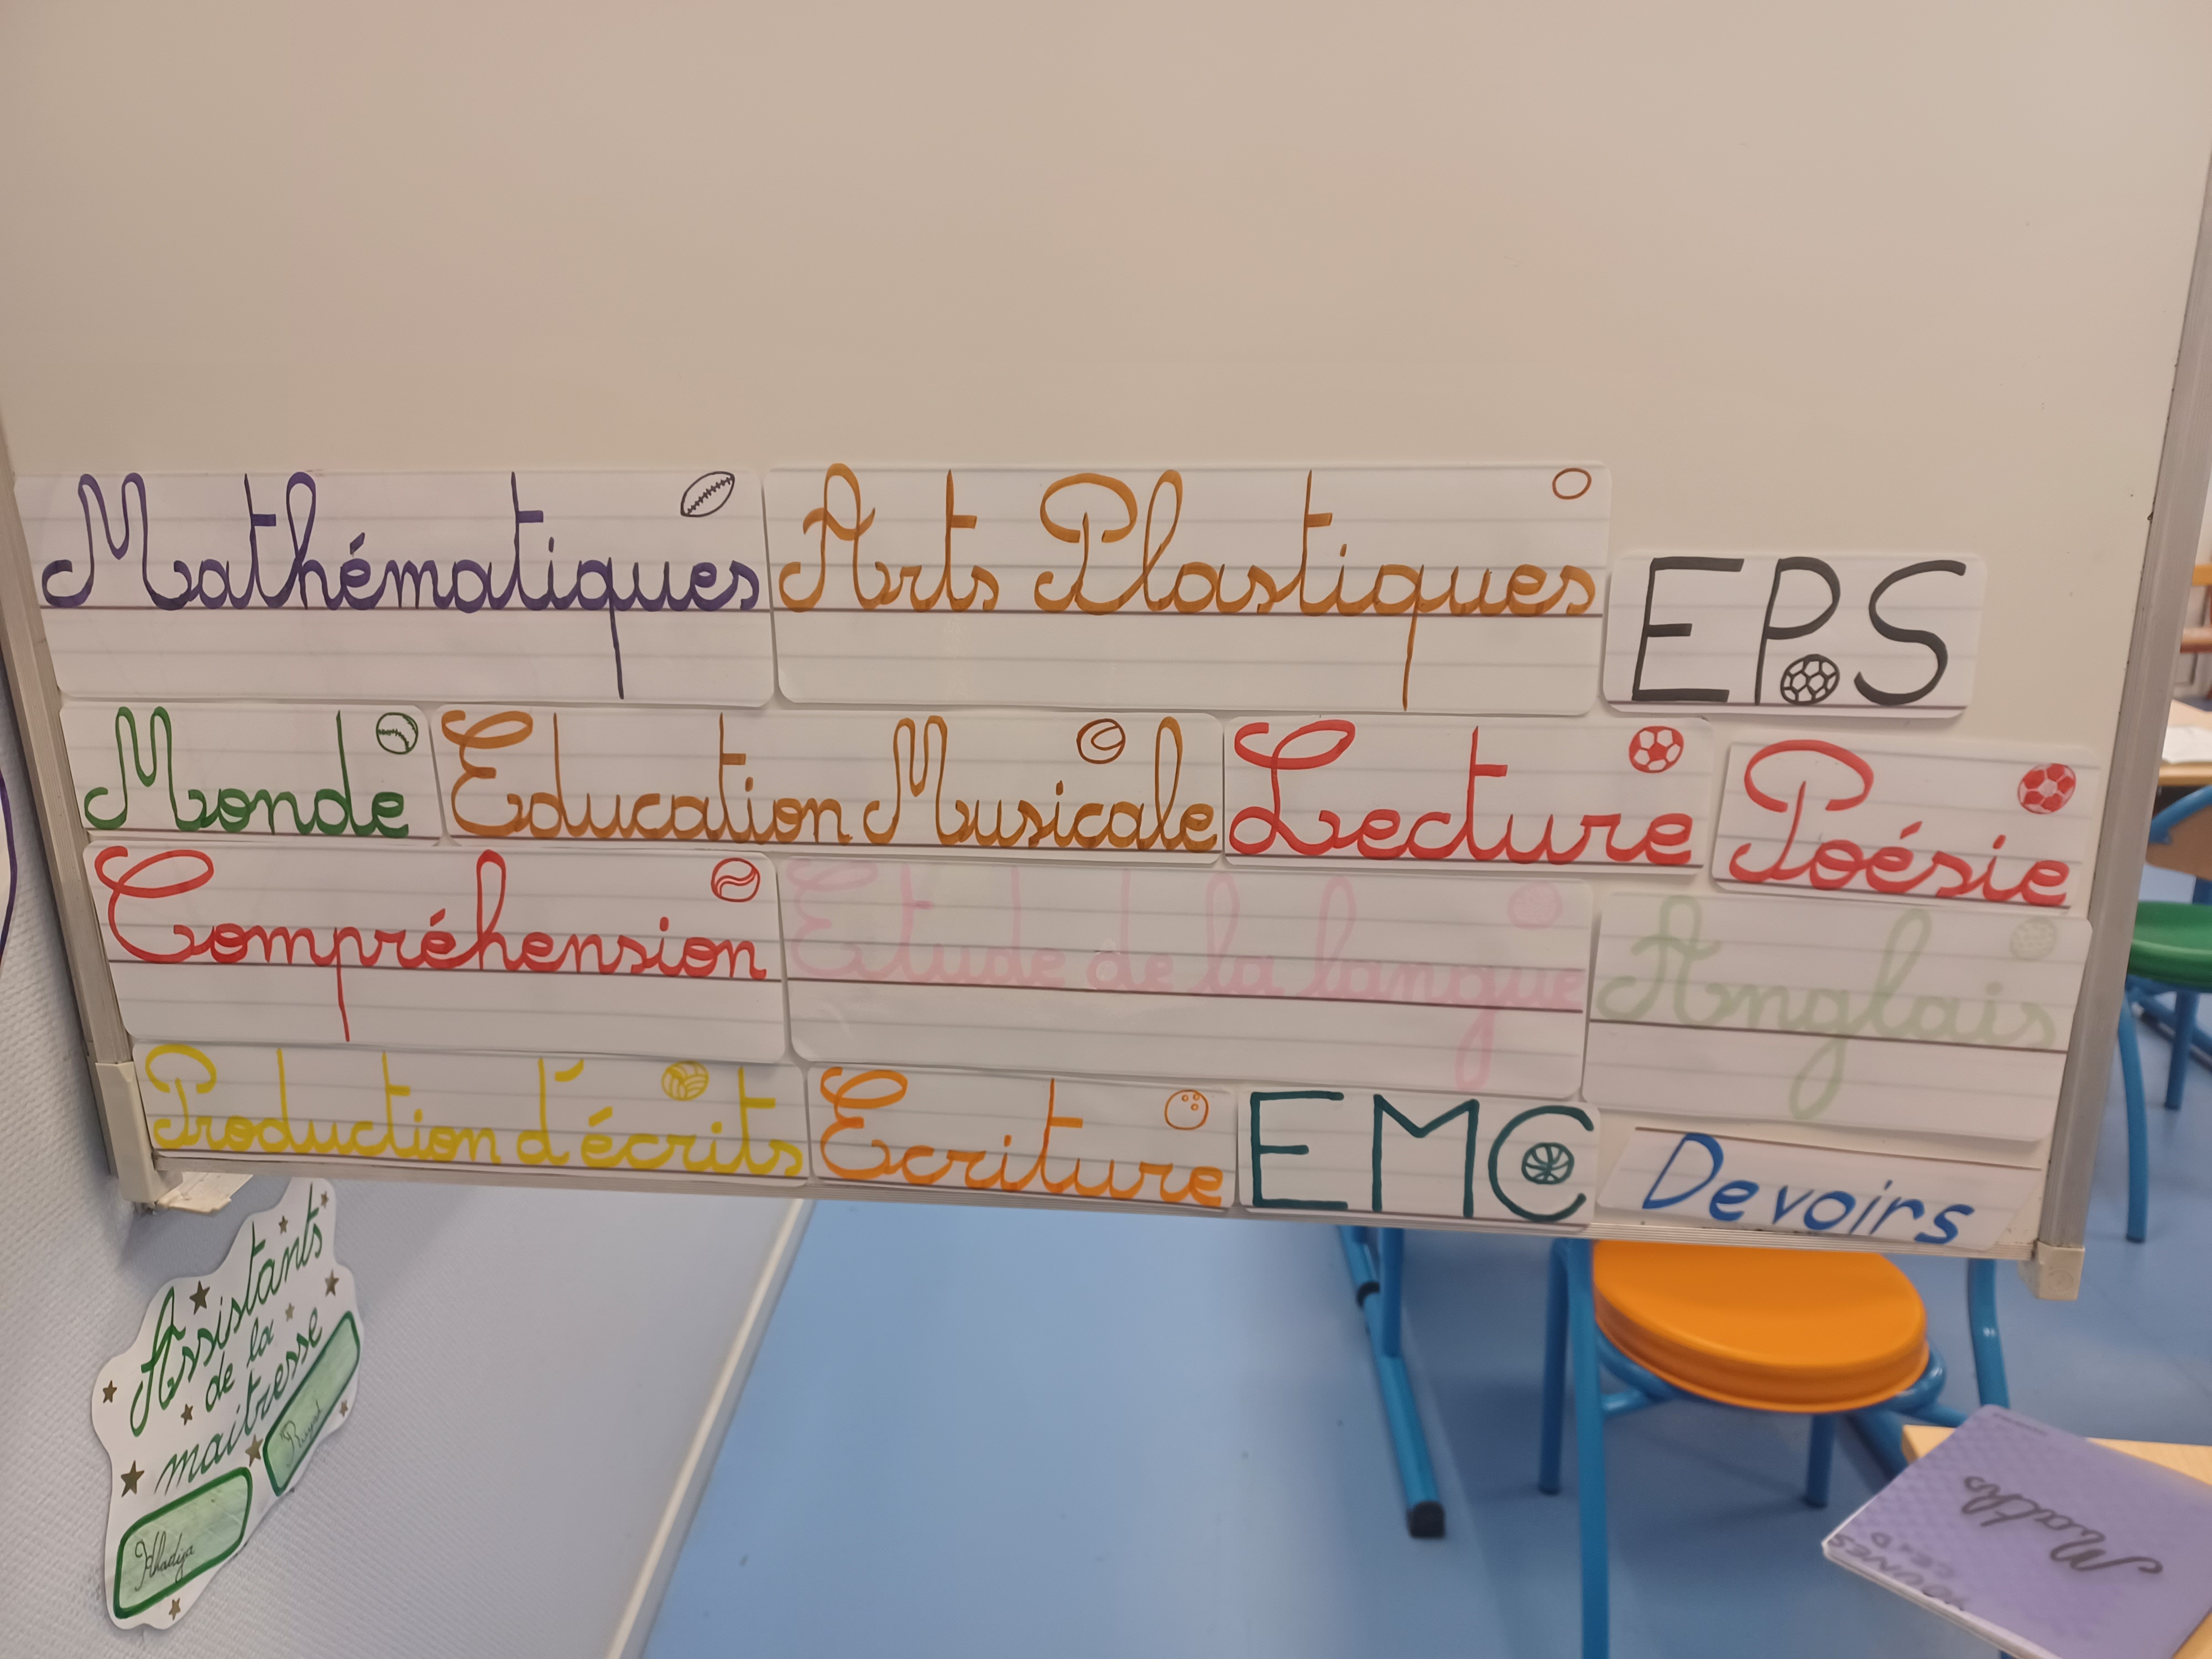 Mathématiques
Arts Plastiques
EPS
Monde
Education Musicale
Lecture
Poésie
Compréhension
Etude de la langue
Anglais
Production d'écrits
Ecriture
EMC
Devoirs
Assistants
de la
maitresse
Khadija
Maths